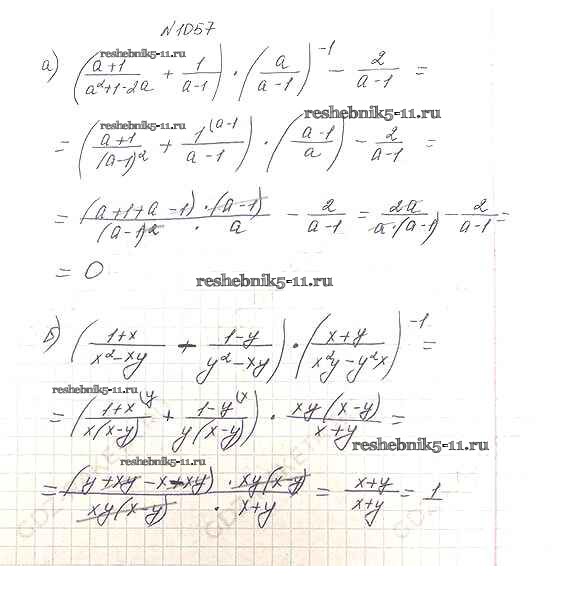 N1057
reshebnik5-11.ru
а) ((a+1)/(a²+1-2a) + 1/(a-1)) · (a/(a-1))^-1 - 2/(a-1) =
reshebnik5-11.ru
reshebnik5-11.ru
= ((a+1)/(a-1)² + 1^(a-1/(a-1)) · ((a-1)/a) - 2/(a-1) =
= (a+1+a-1)·(a-1)/((a-1)² · a) - 2/(a-1) = 2a/(a·(a-1)) - 2/(a-1) =
= 0
reshebnik5-11.ru
б) ((1+x)/(x²-xy) + (1-y)/(y²-xy)) · ((x+y)/(x²y-y²x))^-1 =
reshebnik5-11.ru
= ((1+x^(y)/(x(x-y)) + (1-y^(x)/(y(x-y))) · xy(x-y)/(x+y) =
reshebnik5-11.ru
reshebnik5-11.ru
= (y+xy-x+xy) · xy(x-y)/(xy(x-y) · x+y) = (x+y)/(x+y) = 1